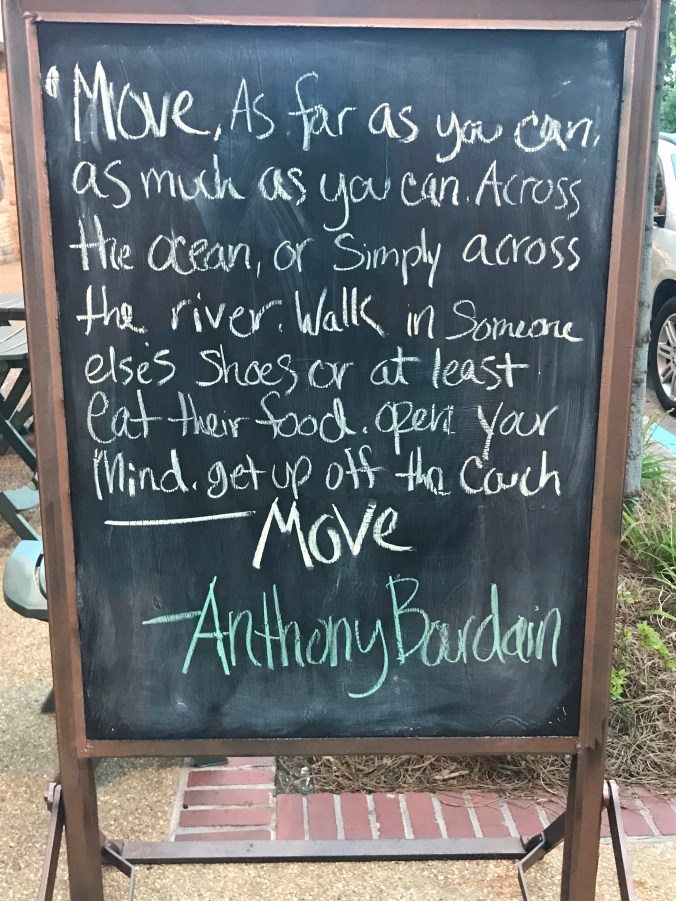 "Move, As far as you can,
as much as you can. Across
the ocean, or simply across
the river. Walk in Someone
else's shoes or at least
eat their food. open your
Mind. get up off the Couch
— Move
- Anthony Bourdain